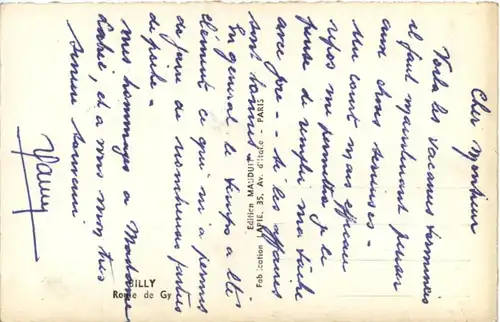 Cher Monsieur
Voilà les vacances terminées
il faut maintenant penser
aux choses sérieuses -
Un court mais efficace
repos me permettra je le
pense de remplir ma tâche
avec joie - - si les affaires
sont bonnes
En général le temps a été
clément ce qui m'a permis
de faire de nombreuses parties
de pêche -
Mes hommages à Madame
et à vous mon très
bon souvenir
Edition MAUDUIT
Fabrication LAPIE, 35, Av. d'Italie - PARIS
GILLY
Route de Gy